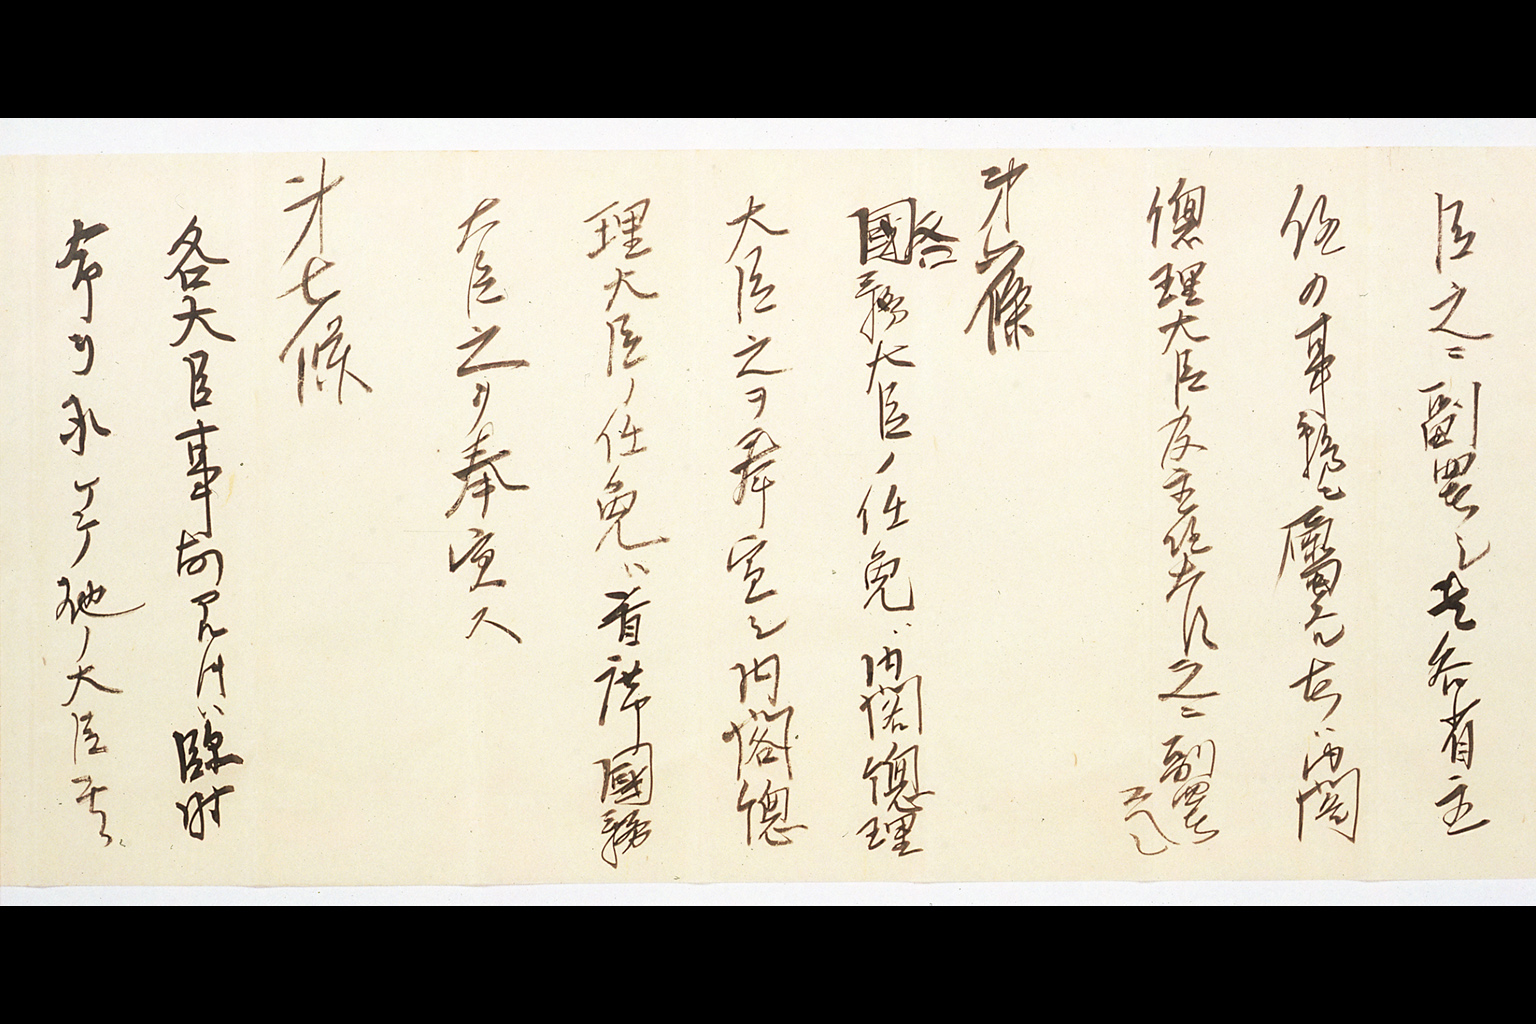 臣之ニ副署シ其各省主
任ノ事務ニ属スル者ハ内閣
總理大臣及主任大臣之ニ副署
スヘシ
第六條
各
國務大臣ノ任免ハ内閣總理
大臣之ヲ奉宣シ内閣總
理大臣ノ任免ハ首席國務
大臣之ヲ奉宣ス
第七條
各大臣事故アル時ハ臨時
命ヲ承ケテ他ノ大臣其